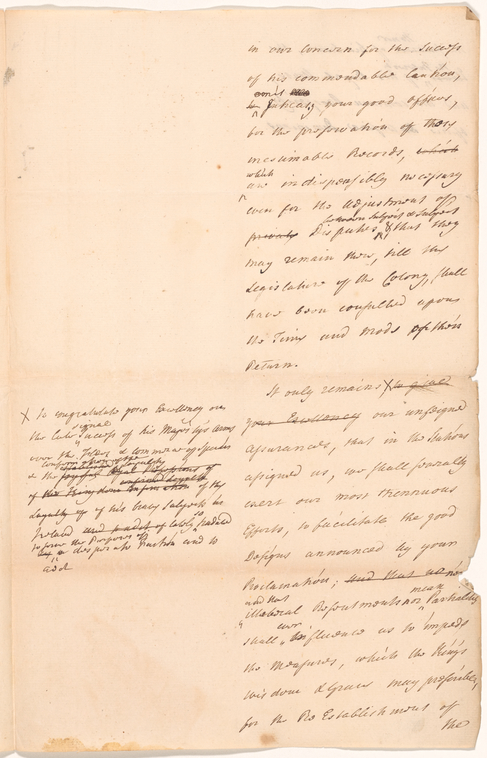 in our Concern for the Success
of his commendable Caution,
omit
to solicit your good offices,
for the preservation of those
inestimable Records, which
which
are indispensibly necessary
even for the Adjustment of
between Subject & Subject
private Disputes, & that they
may remain there, till the
Legislature of the Colony, shall
have been consulted upon
the Time and Mode of their
Return.
It only remains X to give
your Excellency our unfeigned
Assurances, that in the Stations
assigned us, we shall severally
exert our most strenuous
Efforts, to facilitate the good
Designs announced by your
Proclamation; and that no
and that mean
illiberal Resentments nor Partiality
ever
shall influence us to impede
the Measures, which the King's
Wisdom & Grace may prescribe,
for the Re Establishment of
the
X to congratulate your Excellency on
signal
the late Success of his Majesty's Arms
over the Fleets & Commerce of Spain
& the
of the
Loyalty of his Subjects in
Ireland so
lately
to
a desperate Faction and to
add